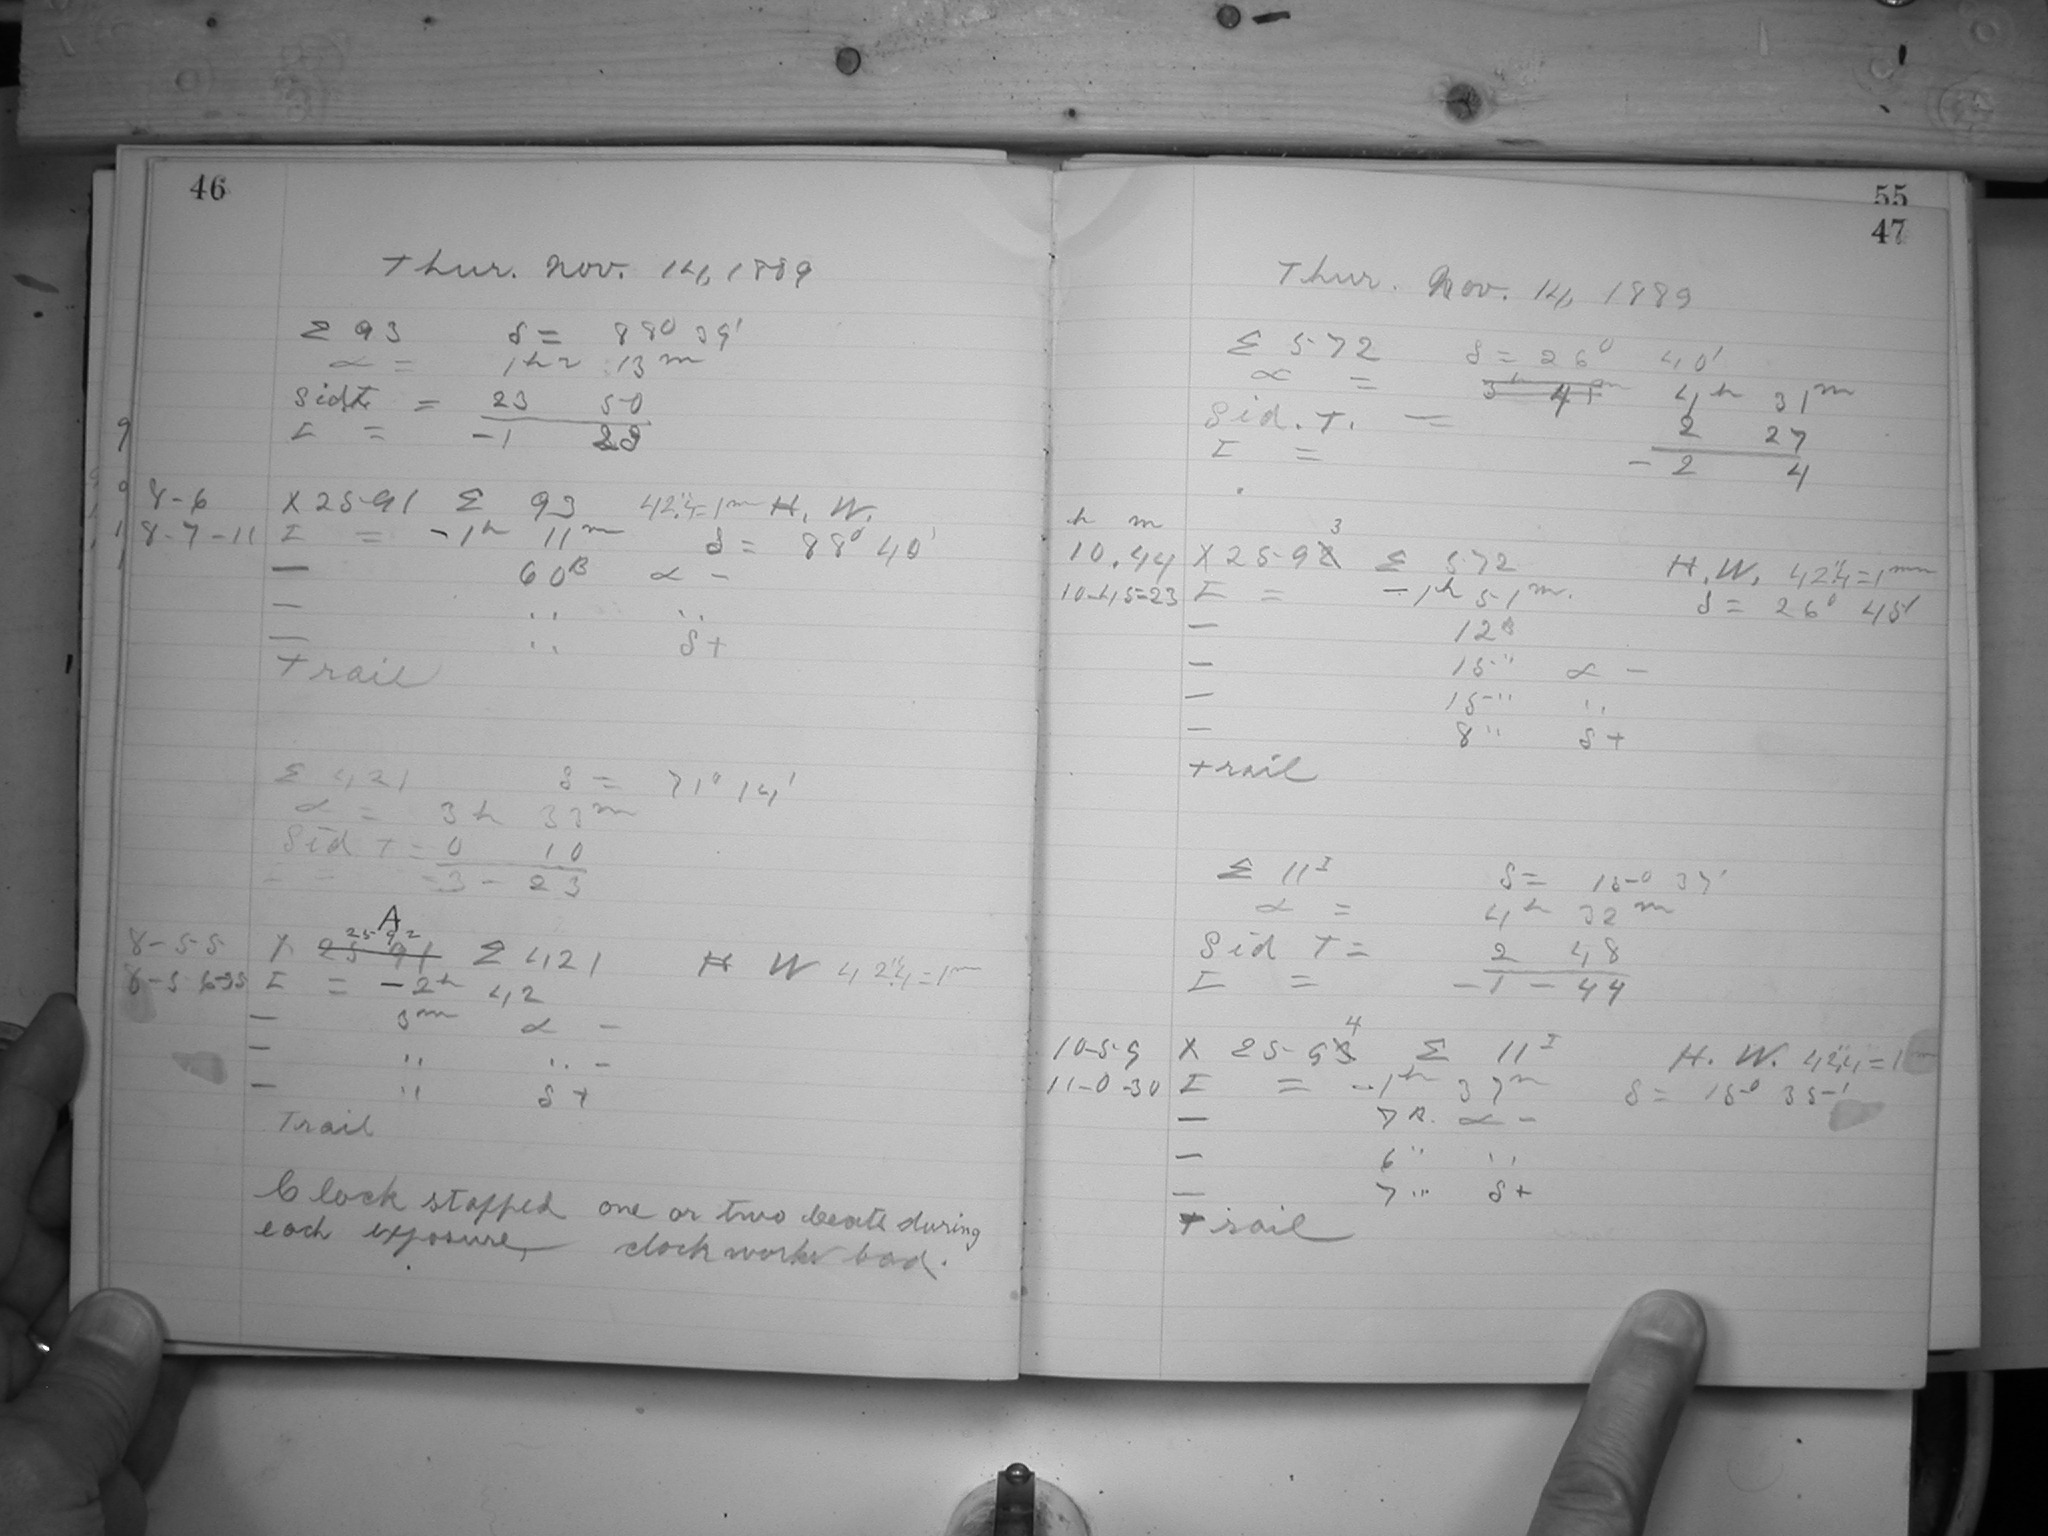 46
Thur. Nov. 14, 1889
Σ 93 δ = 88° 39'
α = 1h 13m
Sid. T. = 23 50
I = -1 23
9
9 8-6 X 2591 Σ 93 42".4=1m H. W.
1 8-7-11 I = -1h 11m δ = 88° 40'
— 60B α -
— " "
— " δ +
Trail
Σ 421 δ = 71° 14'
α = 3h 33m
Sid T = 0 10
-3 - 23
A
2592
8-55 X 2591 Σ 421 H W 42".4=1m
8-56-35 I = -2h 42
— 3m α -
— " " -
— " δ +
Trail
Clock stopped one or two beats during
each exposure, clock works bad.
55
47
Thur. Nov. 14, 1889
Σ 572 δ = 26° 40'
α = 3h 41m 4h 31m
Sid. T. = 2 27
I = - 2 4
h m 3
10.44 X 2592 Σ 572 H. W. 42".4=1m
10-45=23 I = -1h 51m. δ = 26° 45'
— 12B
— 15" α -
— 15" "
— 8" δ +
Trail
Σ 11I δ = 15° 37'
α = 4h 32m
Sid T = 2 48
I = -1 - 44
4
10-59 X 2593 Σ 11I H. W. 42".4=1m
11-0-30 I = -1h 37m δ = 15° 35'
— 7B. α -
— 6" "
— 7" δ +
Trail